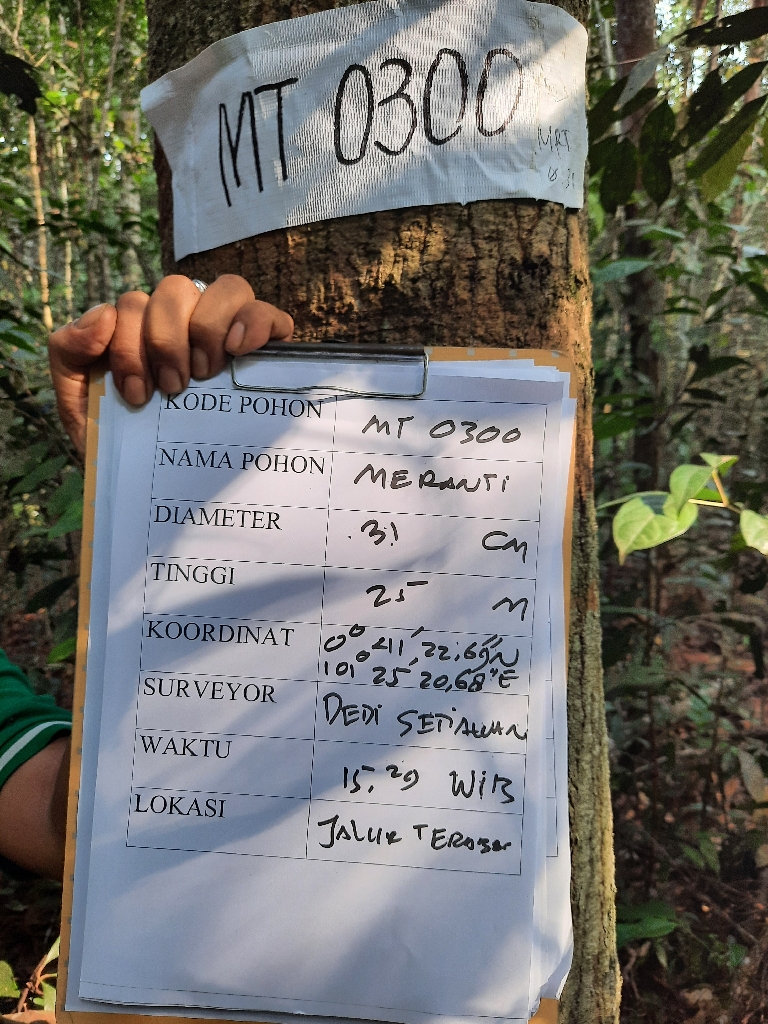 MT 0300
MRT
KODE POHON MT 0300
NAMA POHON MERANTI
DIAMETER 31 CM
TINGGI 25 M
KOORDINAT 0° 41' 22,69"N
101° 25' 20,68"E
SURVEYOR DEDI SETIAWAN
WAKTU 15.29 WIB
LOKASI JALUR